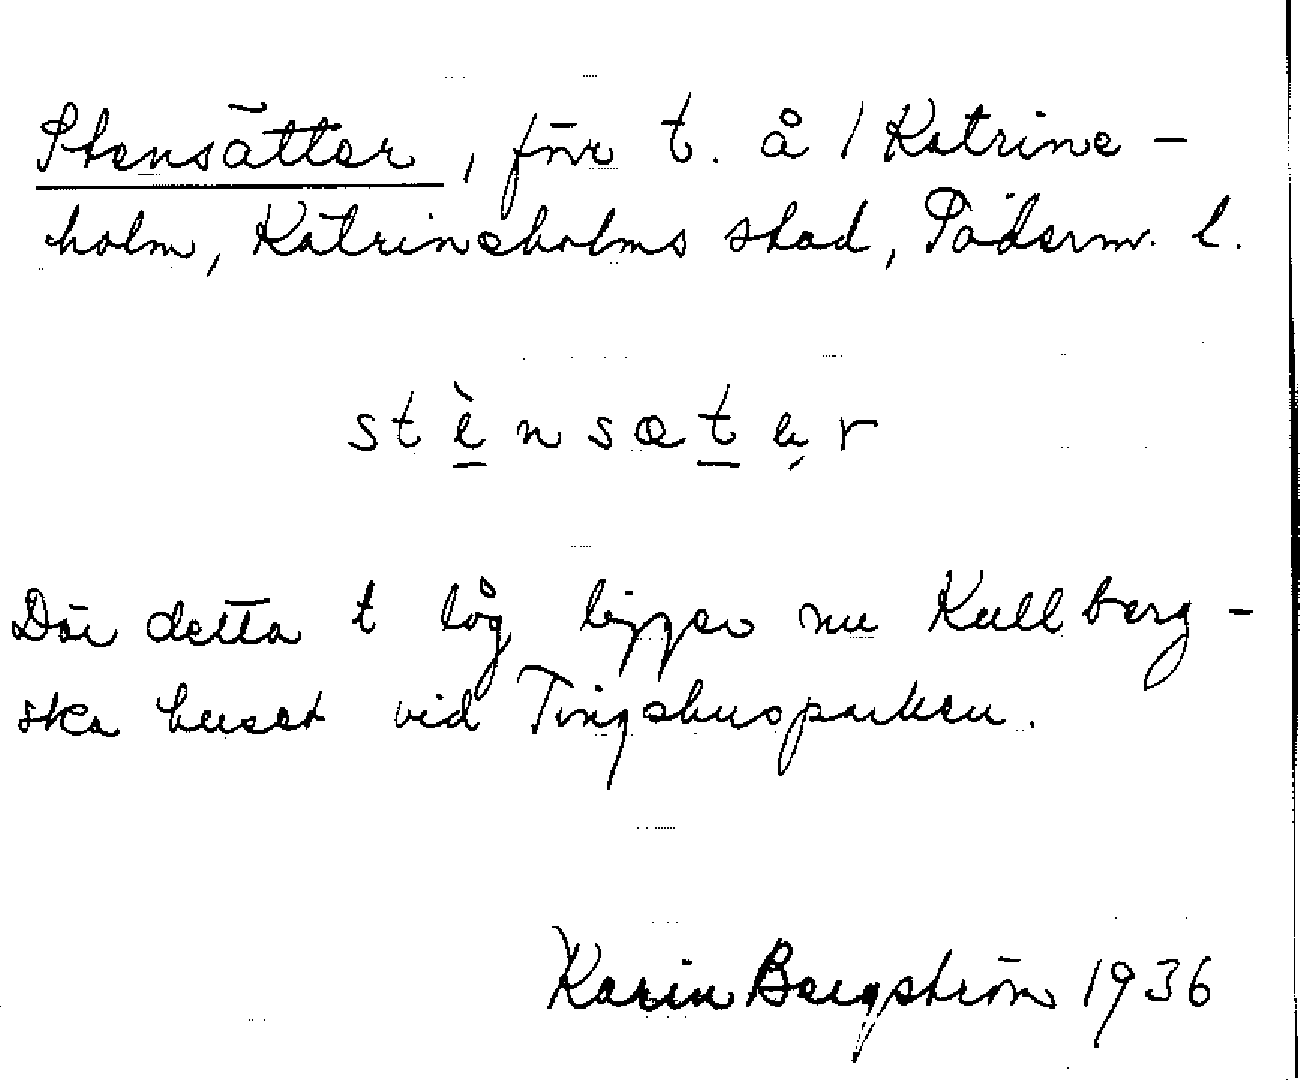 Stensätter, förr t. å 1 Katrine-
holm, Katrineholms stad, Söderm. l.
stènsæter
Där detta t låg ligger nu Kullberg-
ska huset vid Tingshusparken.
Karin Bergström 1936